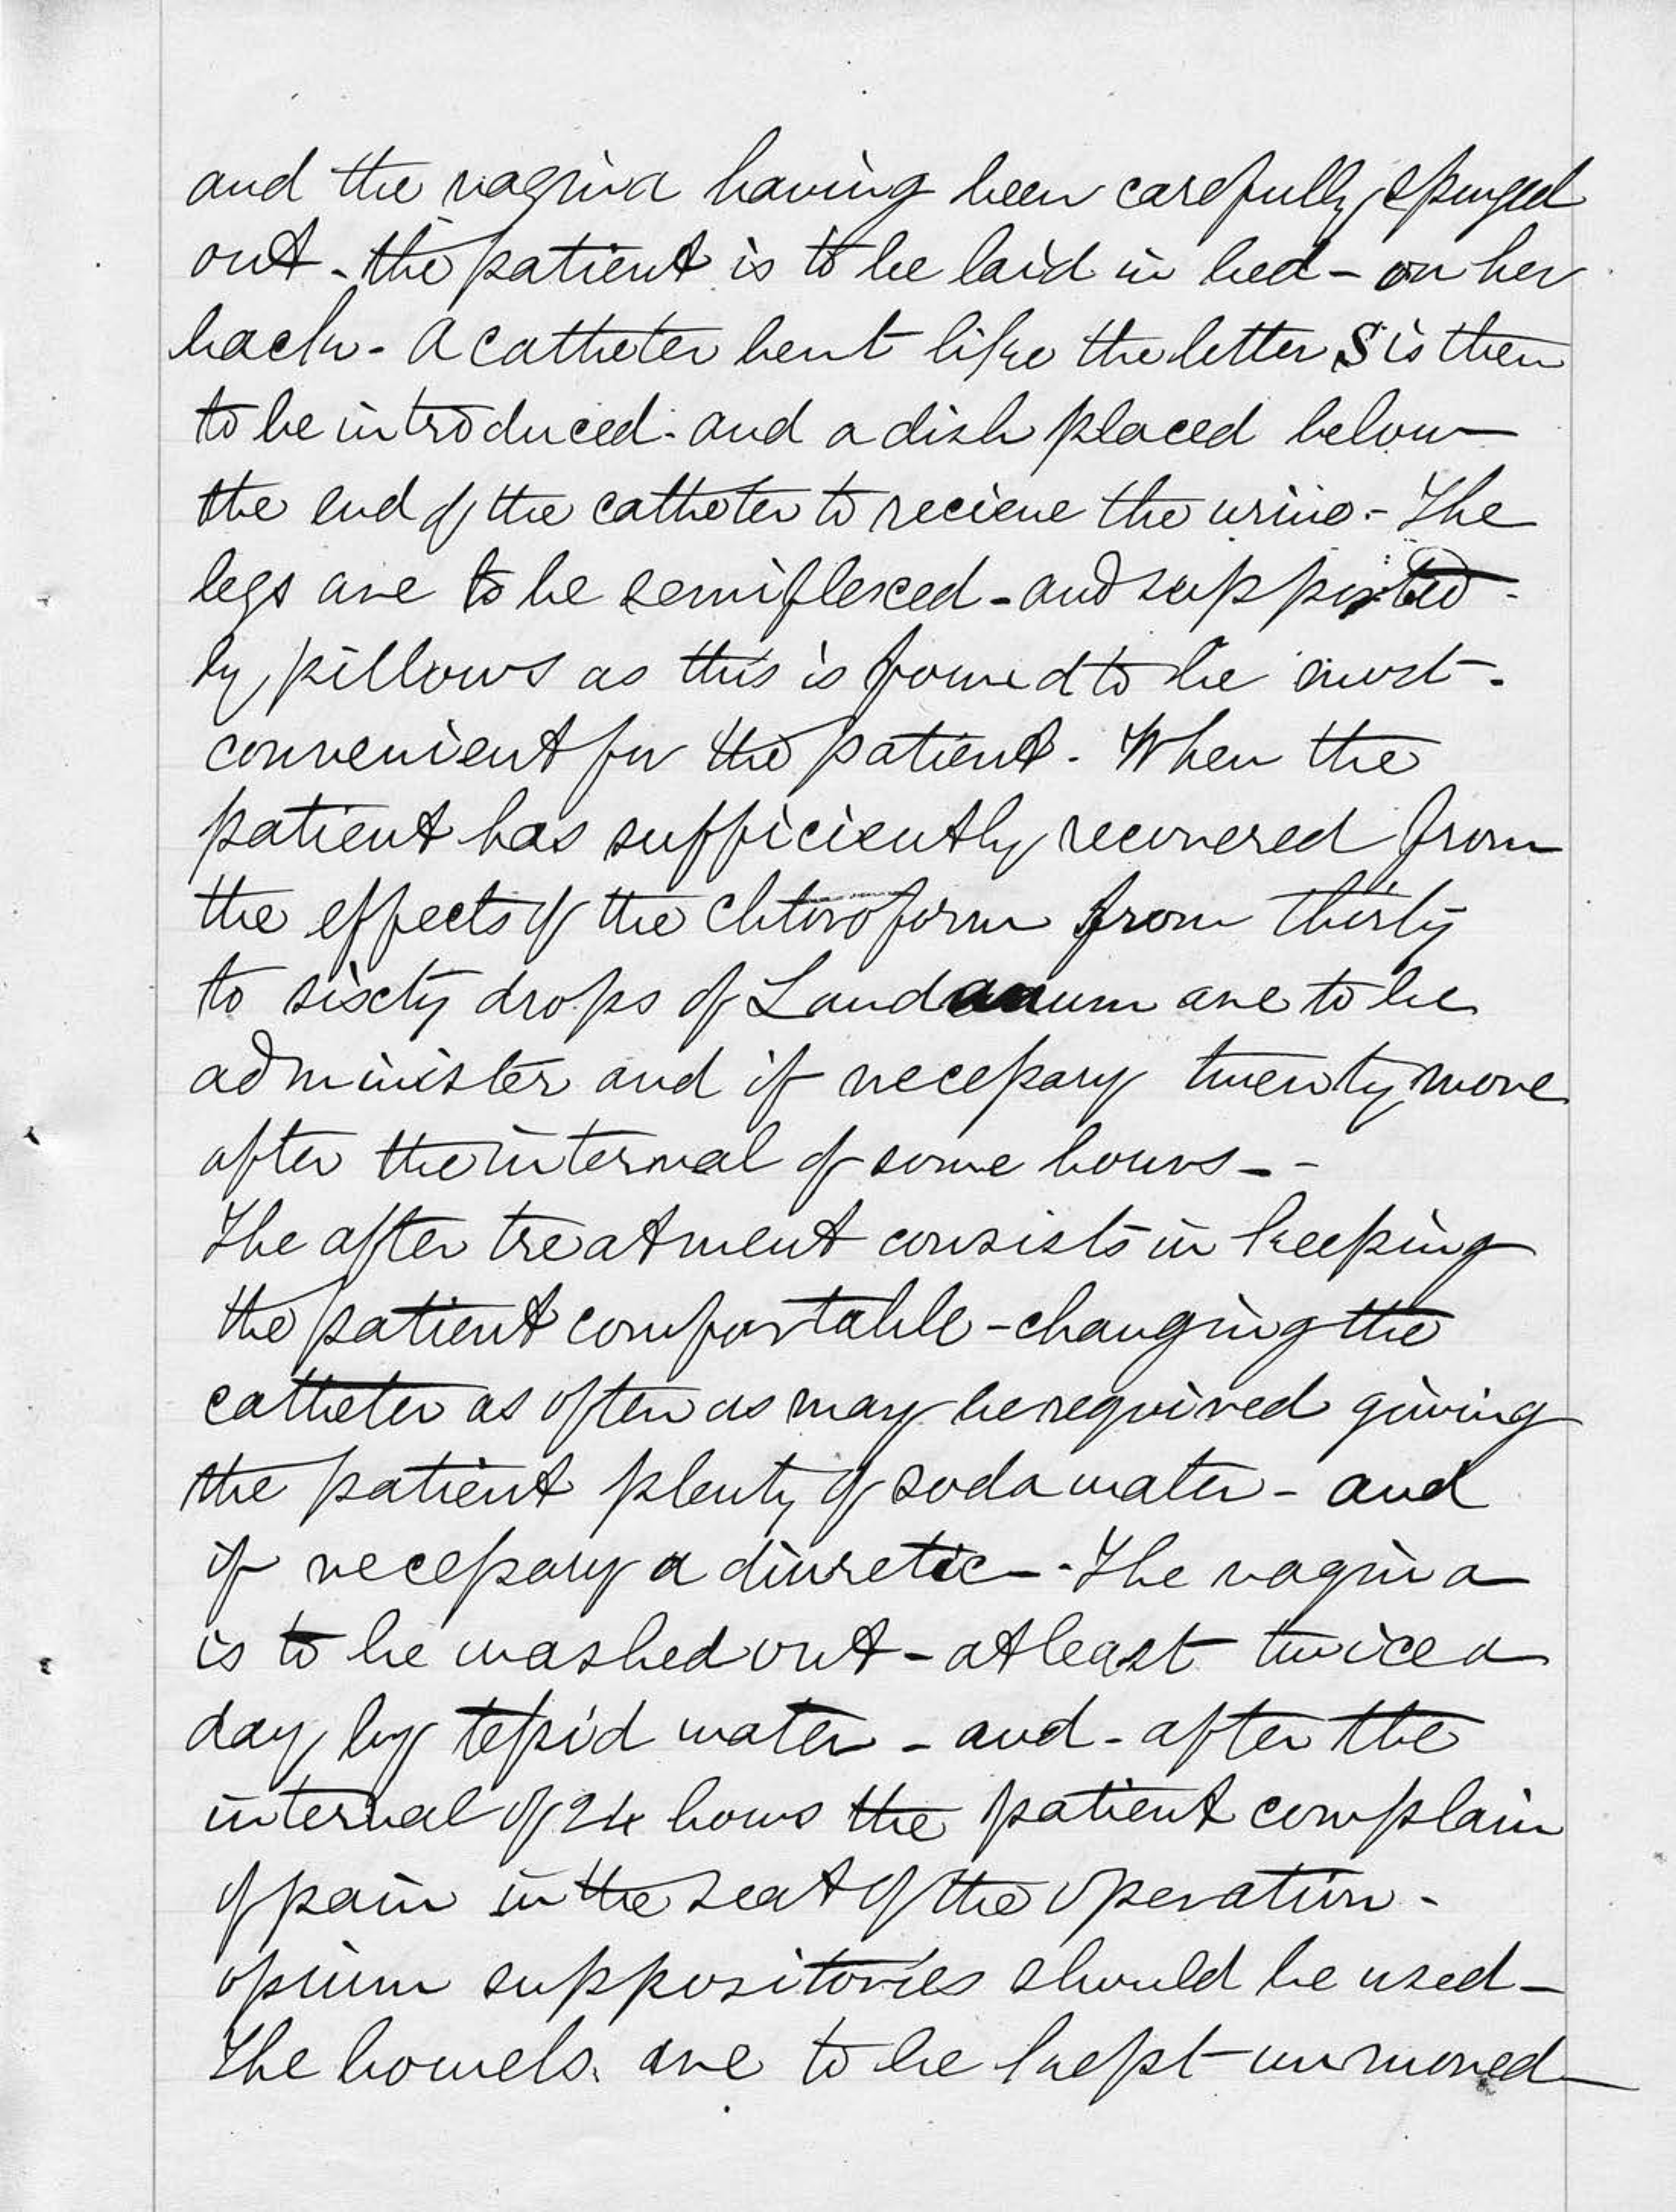 and the vagina having been carefully spunged
out - the patient is to be laid in bed - on her
back - A catheter bent like the letter S is then
to be introduced - and a dish placed below
the end of the catheter to recieve the urine - The
legs are to be semiflexed - and supported -
by pillows as this is found to be most -
convenient for the patient - When the
patient has sufficiently recovered from
the effects of the chloroform from thirty
to sixty drops of Laudanum are to be
administer and if necessary twenty more
after the interval of some hours - -
The after treatment consists in keeping
the patient comfortable - changing the
catheter as often as may be required giving
the patient plenty of soda water - and
if necessary a diuretic - - The vagina
is to be washed out - at least twice a
day by tepid water - and - after the
interval of 24 hours the patient complain
of pain in the seat of the operation -
opium suppositories should be used -
The bowels are to be kept unmoved